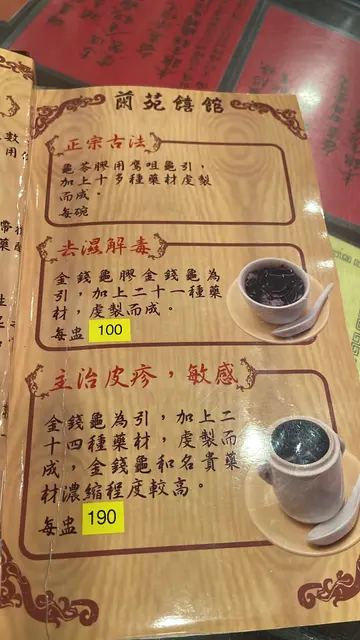 蘭苑饎館
正宗古法
龜苓膠用鷹咀龜引，
加上十多種藥材虔製
而成。
每碗
去濕解毒
金錢龜膠金錢龜為
引，加上二十一種藥
材，虔製而成。
每盅 100
主治皮疹，敏感
金錢龜為引，加上二
十四種藥材，虔製而
成，金錢龜和名貴藥
材濃縮程度較高。
每盅 190